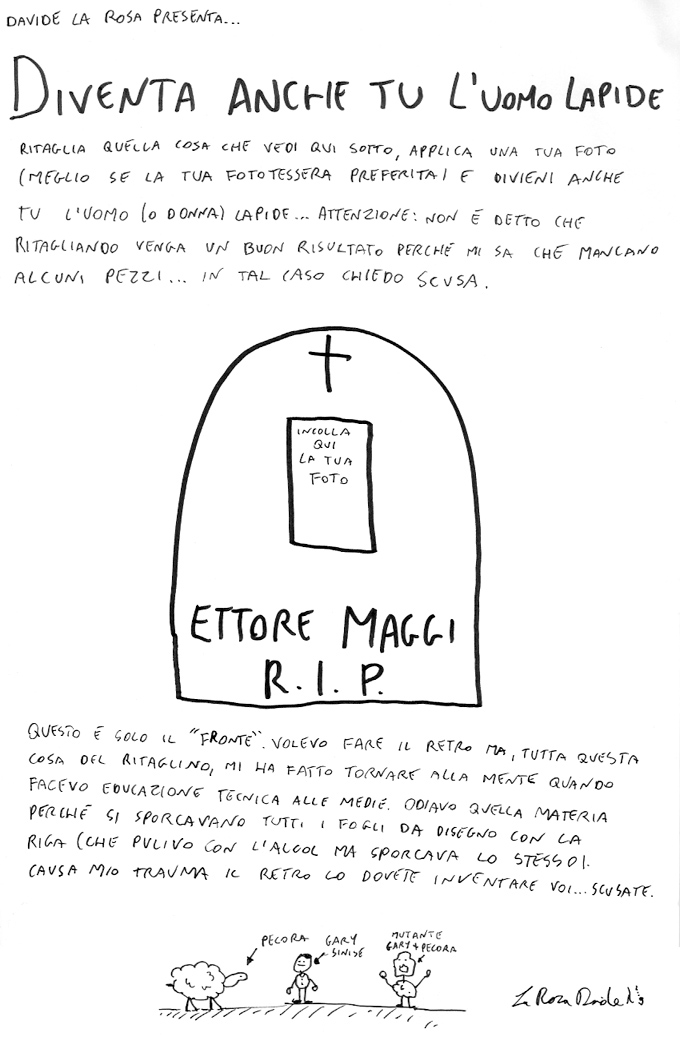 DAVIDE LA ROSA PRESENTA...
DIVENTA ANCHE TU L'UOMO LAPIDE
RITAGLIA QUELLA COSA CHE VEDI QUI SOTTO, APPLICA UNA TUA FOTO
(MEGLIO SE LA TUA FOTOTESSERA PREFERITA) E DIVIENI ANCHE
TU L'UOMO (O DONNA) LAPIDE... ATTENZIONE: NON È DETTO CHE
RITAGLIANDO VENGA UN BUON RISULTATO PERCHÉ MI SA CHE MANCANO
ALCUNI PEZZI... IN TAL CASO CHIEDO SCUSA.
INCOLLA
QUI
LA TUA
FOTO
ETTORE MAGGI
R.I.P.
QUESTO È SOLO IL "FRONTE". VOLEVO FARE IL RETRO MA, TUTTA QUESTA
COSA DEL RITAGLINO, MI HA FATTO TORNARE ALLA MENTE QUANDO
FACEVO EDUCAZIONE TECNICA ALLE MEDIE. ODIAVO QUELLA MATERIA
PERCHÉ SI SPORCAVANO TUTTI I FOGLI DA DISEGNO CON LA
RIGA (CHE PULIVO CON L'ALCOL MA SPORCAVA LO STESSO).
CAUSA MIO TRAUMA IL RETRO LO DOVETE INVENTARE VOI... SCUSATE.
PECORA
GARY
SINISE
MUTANTE
GARY + PECORA
La Rosa Davide